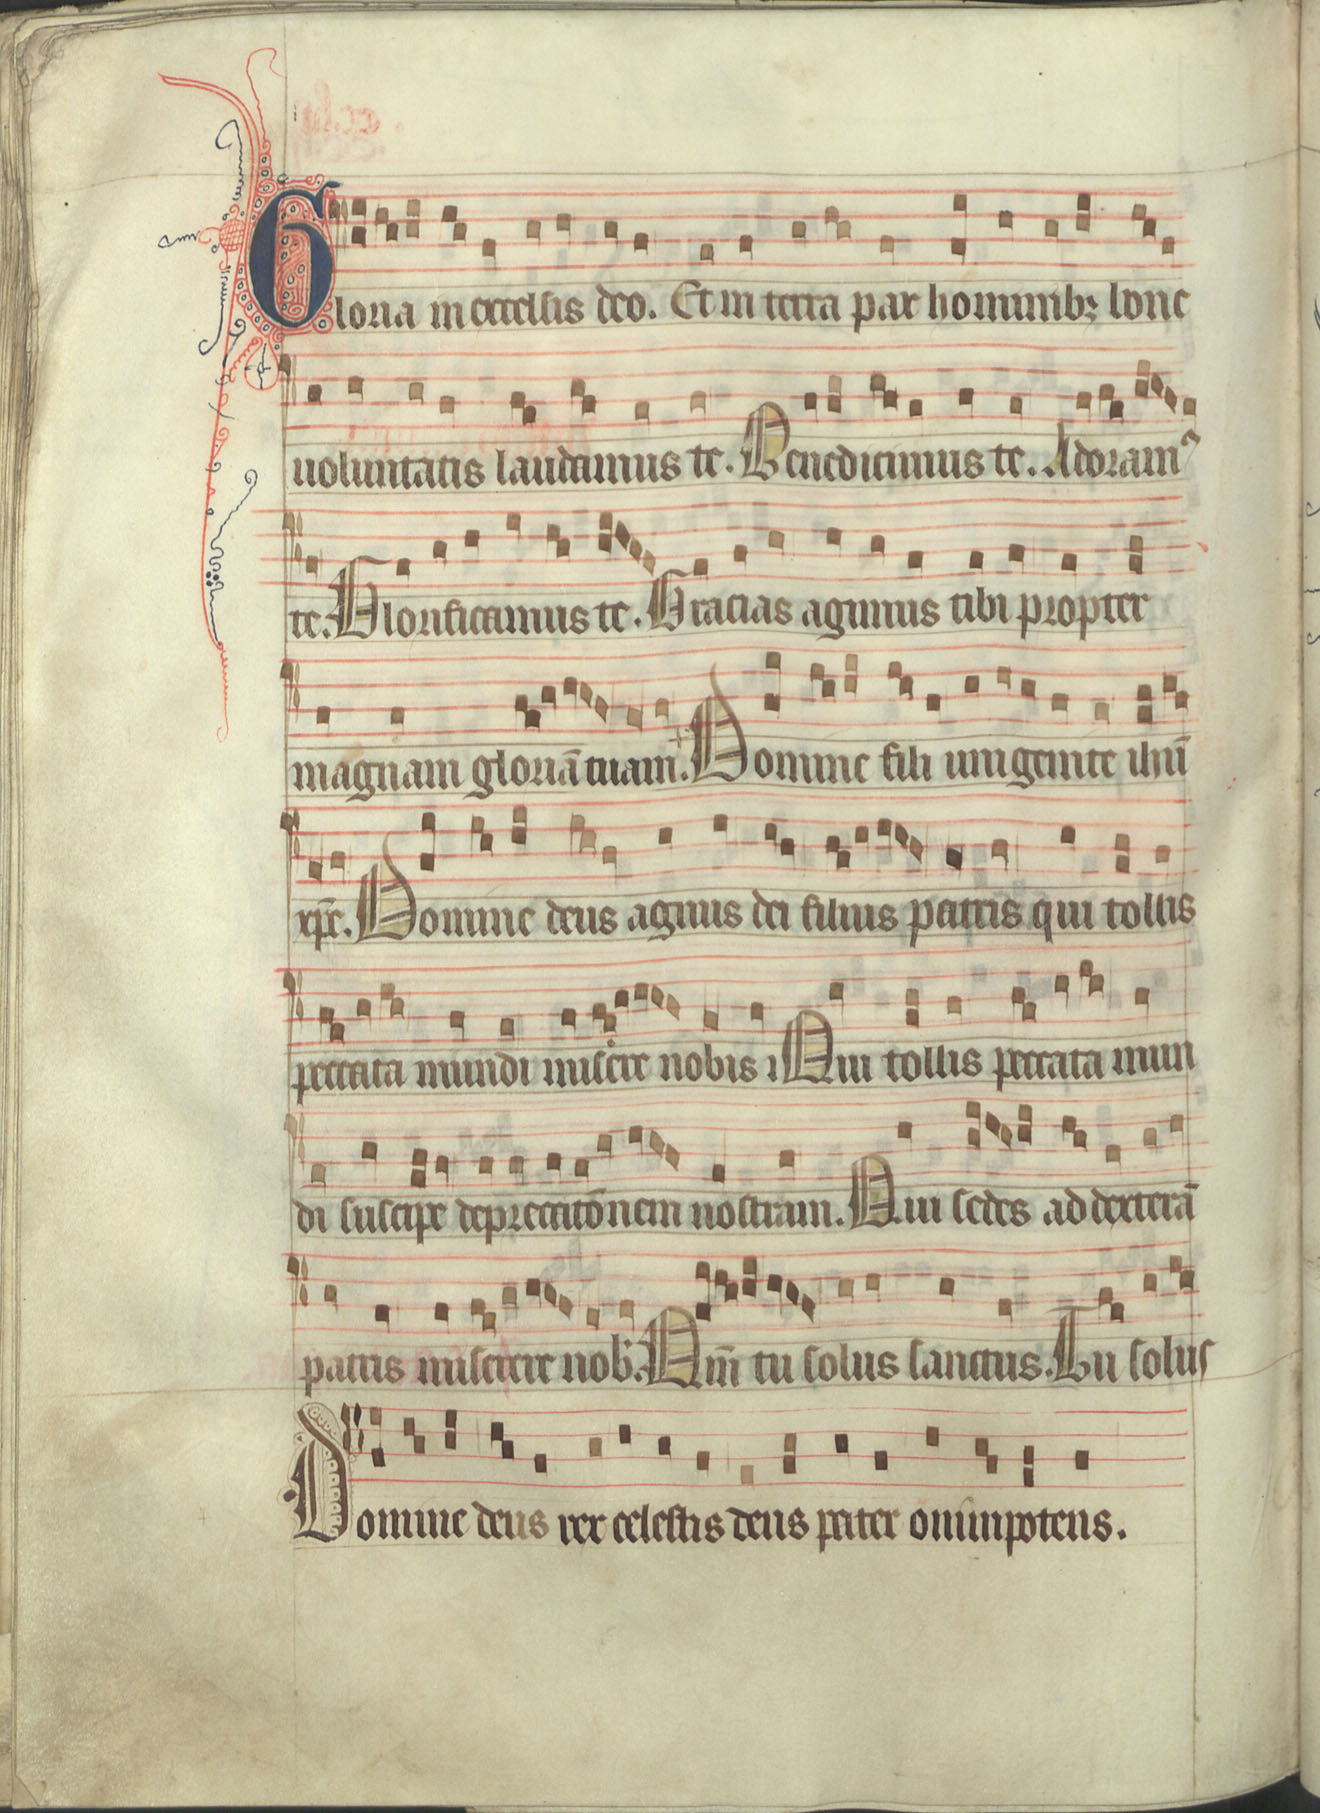 Gloria in excelsis deo. Et in terra pax hominibꝫ bone
uoluntatis laudamus te. Benedicimus te. Adoramꝰ
te. Glorificamus te. Gracias agimus tibi propter
magnam gloriā tuam. Domine fili unigenite ihū
xp̄e. Domine deus agnus dei filius patris qui tollis
peccata mundi miserere nobis Qui tollis peccata mun
di suscipe deprecatōnem nostram. Qui sedes ad dexterā
patris miserere nob. Qm̄ tu solus sanctus. Tu solus
Domine deus rex celestis deus pater omnipotens.